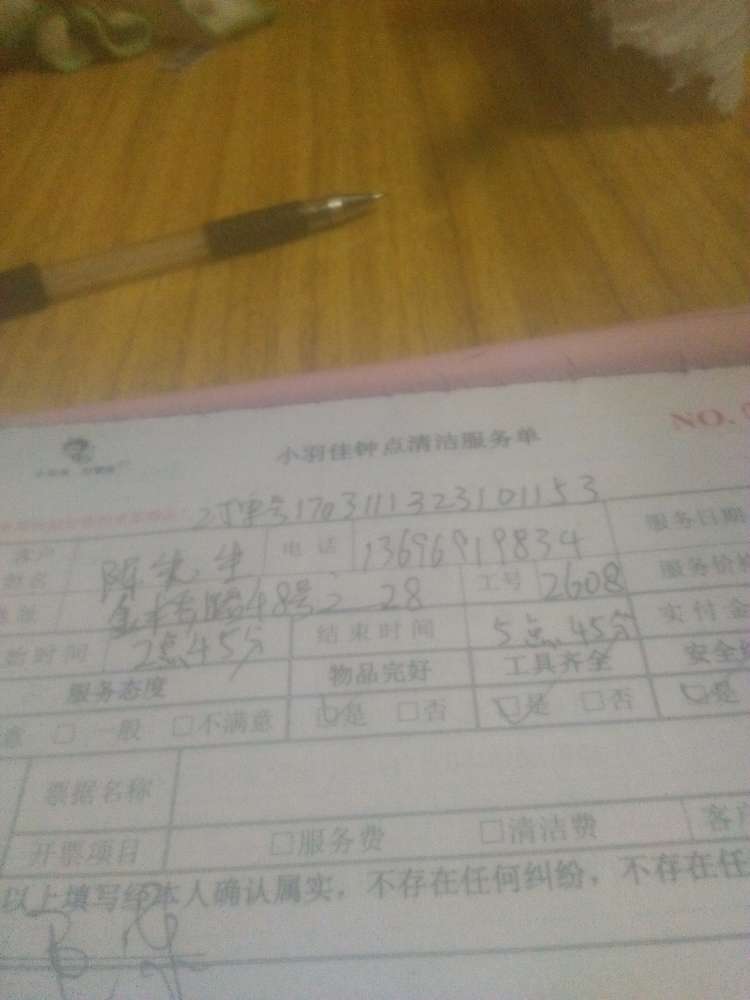 小羽佳钟点清洁服务单
NO.
订单号1703111323101153
客户 陈先生 电话 13696919834 服务日期
姓名
48号之 28 工号 2608 服务价格
始时间 2点45分 结束时间 5点45分 实付金
服务态度 物品完好 工具齐全 安全
意 □一般 □不满意 □是 □否 □是 □否 □是
票据名称
开票项目 □服务费 □清洁费 客户
以上填写经本人确认属实，不存在任何纠纷，不存在任